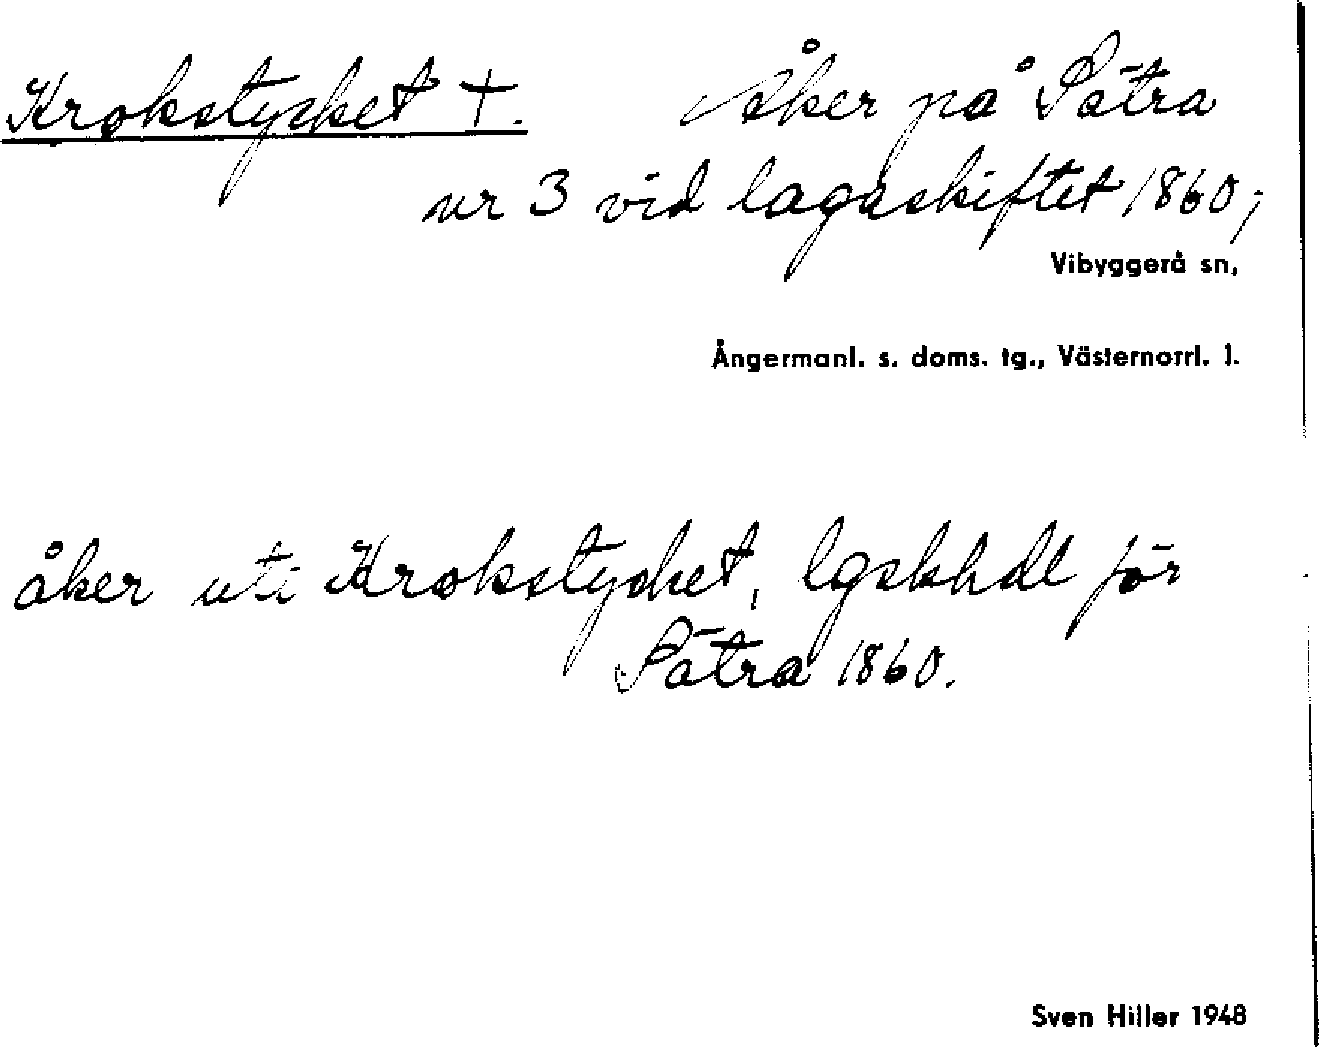 Krokstycket †. Åker på Sätra
nr 3 vid lagaskiftet 1860;
Vibyggerå sn,
Ångermanl. s. doms. tg., Västernorrl. l.
åker uti Krokstycket, lgskhdl för
Sätra 1860.
Sven Hiller 1948